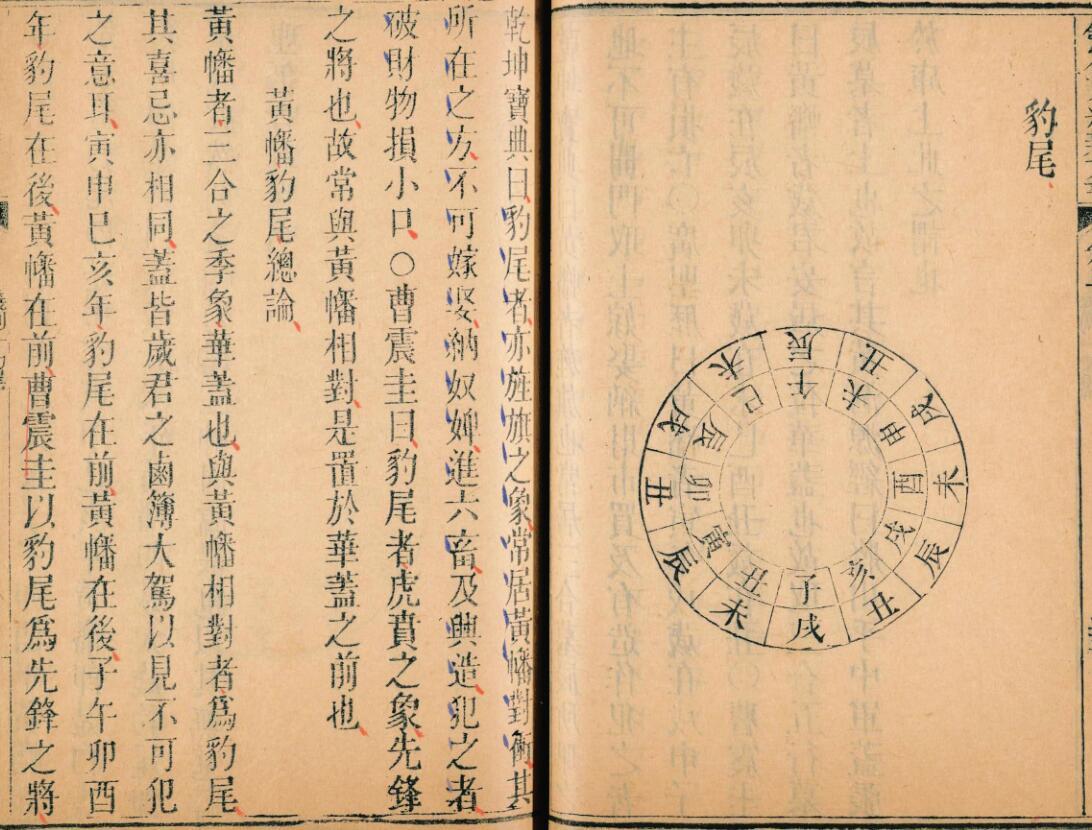 豹尾
子丑寅卯辰巳午未申酉戌亥
戌未辰丑戌未辰丑戌未辰丑
乾坤寶典曰豹尾者亦旌旗之象常居黃幡對衝其
所在之方不可嫁娶納奴婢進六畜及興造犯之者
破財物損小口○曹震圭曰豹尾者虎賁之象先鋒
之將也故常與黃幡相對是置於華蓋之前也
黃幡豹尾總論
黃幡者三合之季象華蓋也與黃幡相對者爲豹尾
其喜忌亦相同蓋皆歲君之鹵簿大駕以見不可犯
之意耳寅申巳亥年豹尾在前黃幡在後子午卯酉
年豹尾在後黃幡在前曹震圭以豹尾爲先鋒之將